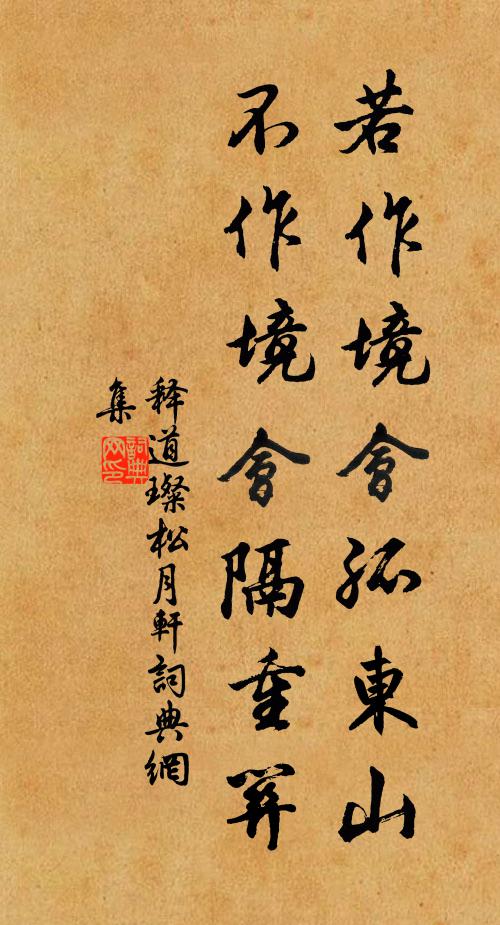 若作境會孤東山
不作境會隔重關
释道璨松月軒詞典網
集
詞典
网印